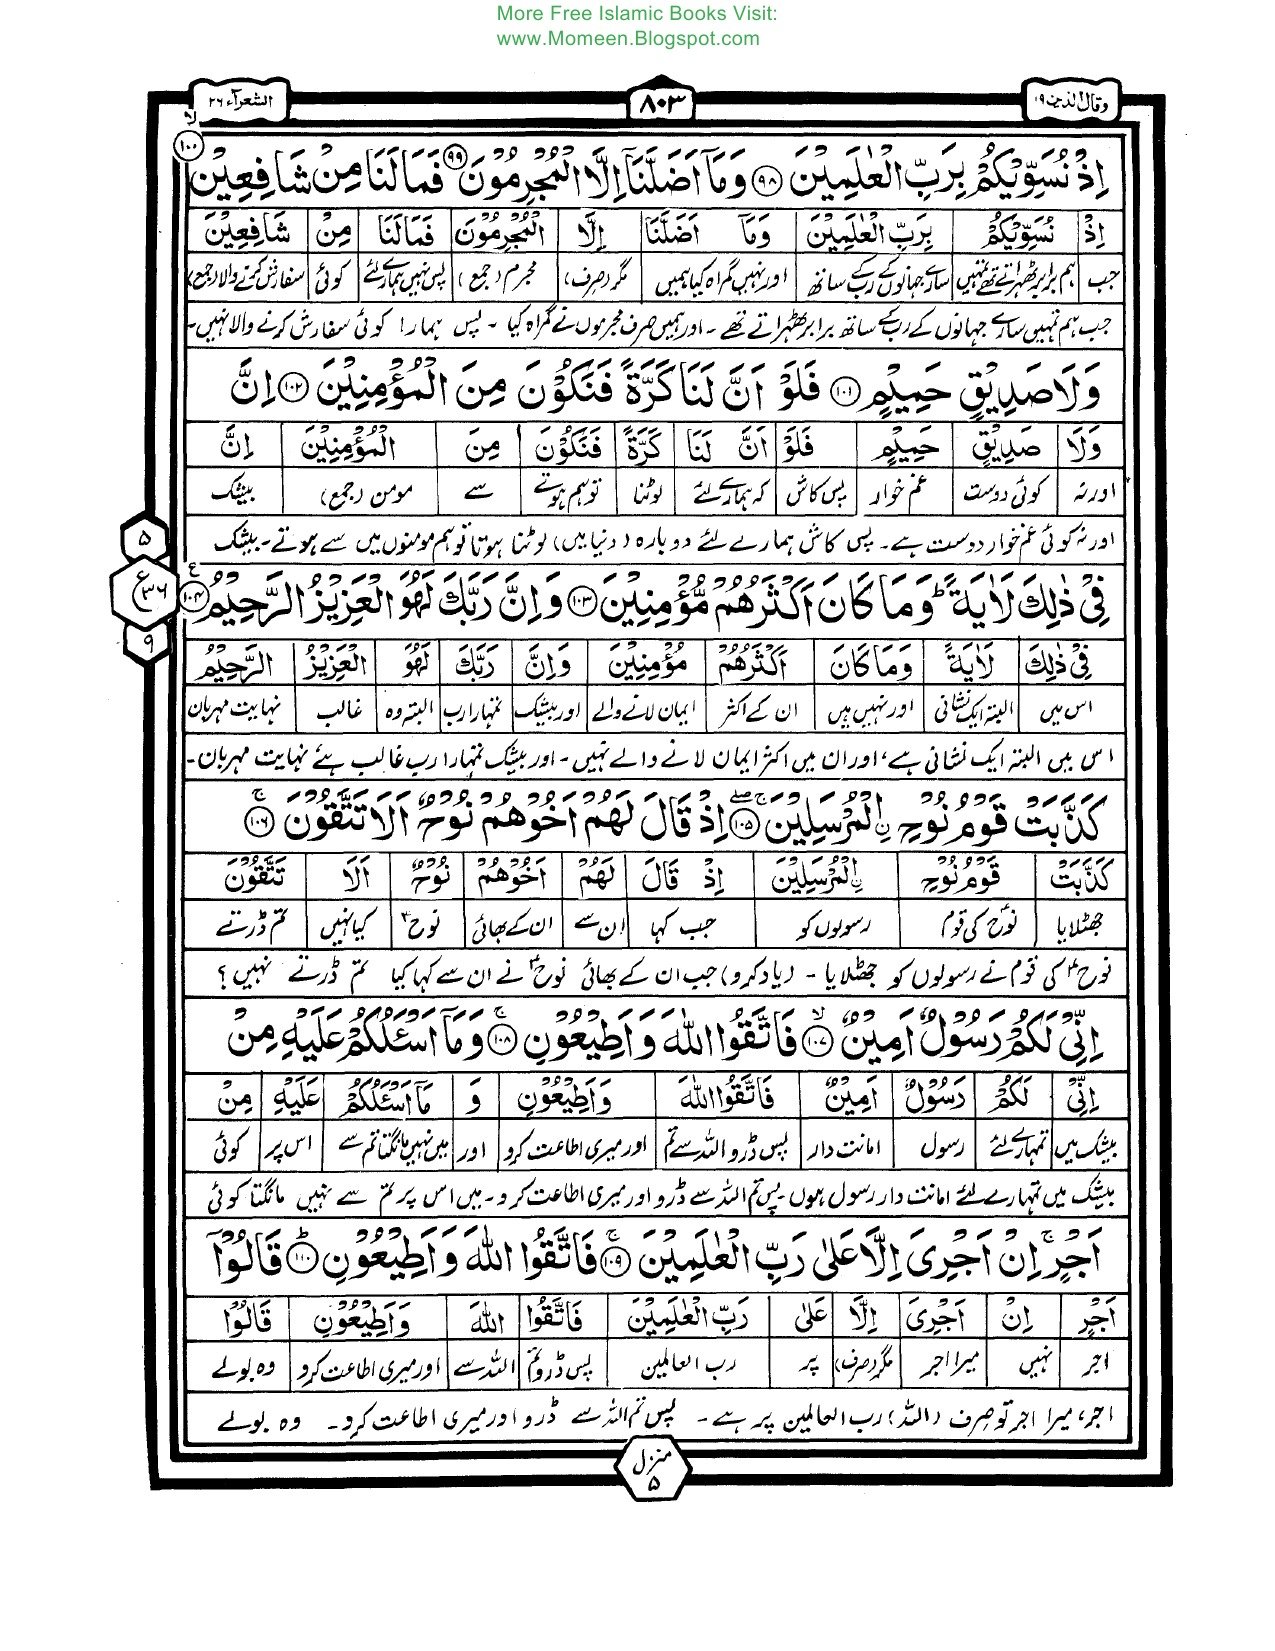 More Free Islamic Books Visit:
www.Momeen.Blogspot.com
وقال الذین ۱۹
۸۰۳
الشعرآء ۲۶
اِذْ نُسَوِّيْكُمْ بِرَبِّ الْعٰلَمِيْنَ ۹۸ وَمَاۤ اَضَلَّنَاۤ اِلَّا الْمُجْرِمُوْنَ ۹۹ فَمَا لَنَا مِنْ شَافِعِيْنَ ۱۰۰ لا
اِذْ نُسَوِّيْكُمْ بِرَبِّ الْعٰلَمِيْنَ وَمَاۤ اَضَلَّنَاۤ اِلَّا الْمُجْرِمُوْنَ فَمَا لَنَا مِنْ شَافِعِيْنَ
جب ہم برابر ٹھہراتے تھے تمہیں سارے جہانوں کے رب کے ساتھ اور نہیں گمراہ کیا ہمیں مگر (صرف) مجرم (جمع) پس نہیں ہمارے لئے کوئی سفارش کرنے والا (جمع)
جب ہم تمہیں سارے جہانوں کے رب کے ساتھ برابر ٹھہراتے تھے ۔ اور ہمیں صرف مجرموں نے گمراہ کیا ۔ پس ہمارا کوئی سفارش کرنے والا نہیں۔
وَلَا صَدِيْقٍ حَمِيْمٍ ۱۰۱ فَلَوْ اَنَّ لَنَا كَرَّةً فَنَكُوْنَ مِنَ الْمُؤْمِنِيْنَ ۱۰۲ اِنَّ
وَلَا صَدِيْقٍ حَمِيْمٍ فَلَوْ اَنَّ لَنَا كَرَّةً فَنَكُوْنَ مِنَ الْمُؤْمِنِيْنَ اِنَّ
اور نہ کوئی دوست غم خوار پس کاش کہ ہمارے لئے لوٹنا تو ہم ہوتے سے مومن (جمع) بیشک
اور نہ کوئی غم خوار دوست ہے۔ پس کاش ہمارے لئے دوبارہ (دنیا میں) لوٹنا ہوتا تو ہم مومنوں میں سے ہوتے۔ بیشک
۵
ع ۳۶
۹
فِيْ ذٰلِكَ لَاٰيَةً ؕ وَمَا كَانَ اَكْثَرُهُمْ مُّؤْمِنِيْنَ ۱۰۳ وَاِنَّ رَبَّكَ لَهُوَ الْعَزِيْزُ الرَّحِيْمُ ۱۰۴ ع
فِيْ ذٰلِكَ لَاٰيَةً وَمَا كَانَ اَكْثَرُهُمْ مُّؤْمِنِيْنَ وَاِنَّ رَبَّكَ لَهُوَ الْعَزِيْزُ الرَّحِيْمُ
اس میں البتہ ایک نشانی اور نہیں ہیں ان کے اکثر ایمان لانے والے اور بیشک تمہارا رب البتہ وہ غالب نہایت مہربان
اس میں البتہ ایک نشانی ہے، اور ان میں اکثر ایمان لانے والے نہیں ۔ اور بیشک تمہارا رب غالب ہے نہایت مہربان۔
كَذَّبَتْ قَوْمُ نُوْحِ ِۨالْمُرْسَلِيْنَ ۱۰۵ اِذْ قَالَ لَهُمْ اَخُوْهُمْ نُوْحٌ اَلَا تَتَّقُوْنَ ۱۰۶
كَذَّبَتْ قَوْمُ نُوْحِ ِۨالْمُرْسَلِيْنَ اِذْ قَالَ لَهُمْ اَخُوْهُمْ نُوْحٌ اَلَا تَتَّقُوْنَ
جھٹلایا نوحؑ کی قوم رسولوں کو جب کہا ان سے ان کے بھائی نوحؑ کیا نہیں تم ڈرتے
نوحؑ کی قوم نے رسولوں کو جھٹلایا ۔ (یاد کرو) جب ان کے بھائی نوحؑ نے ان سے کہا کیا تم ڈرتے نہیں؟
اِنِّيْ لَكُمْ رَسُوْلٌ اَمِيْنٌ ۱۰۷ لا فَاتَّقُوا اللّٰهَ وَاَطِيْعُوْنِ ۱۰۸ ج وَمَاۤ اَسْـَٔلُكُمْ عَلَيْهِ مِنْ
اِنِّيْ لَكُمْ رَسُوْلٌ اَمِيْنٌ فَاتَّقُوا اللّٰهَ وَاَطِيْعُوْنِ وَ مَاۤ اَسْـَٔلُكُمْ عَلَيْهِ مِنْ
بیشک میں تمہارے لئے رسول امانت دار پس ڈرو اللہ سے تم اور میری اطاعت کرو اور میں نہیں مانگتا تم سے اس پر کوئی
بیشک میں تمہارے لئے امانت دار رسول ہوں۔ پس تم اللہ سے ڈرو اور میری اطاعت کرو ۔ میں اس پر تم سے نہیں مانگتا کوئی
اَجْرٍ ۚ اِنْ اَجْرِيَ اِلَّا عَلٰى رَبِّ الْعٰلَمِيْنَ ۱۰۹ ج فَاتَّقُوا اللّٰهَ وَاَطِيْعُوْنِ ۱۱۰ ط قَالُوْۤا
اَجْرٍ اِنْ اَجْرِيَ اِلَّا عَلٰى رَبِّ الْعٰلَمِيْنَ فَاتَّقُوا اللّٰهَ وَاَطِيْعُوْنِ قَالُوْۤا
اجر نہیں میرا اجر مگر (صرف) پر رب العالمین پس ڈرو تم اللہ سے اور میری اطاعت کرو وہ بولے
اجر، میرا اجر تو صرف (اللہ) رب العالمین پر ہے ۔ پس تم اللہ سے ڈرو اور میری اطاعت کرو ۔ وہ بولے
منزل ۵